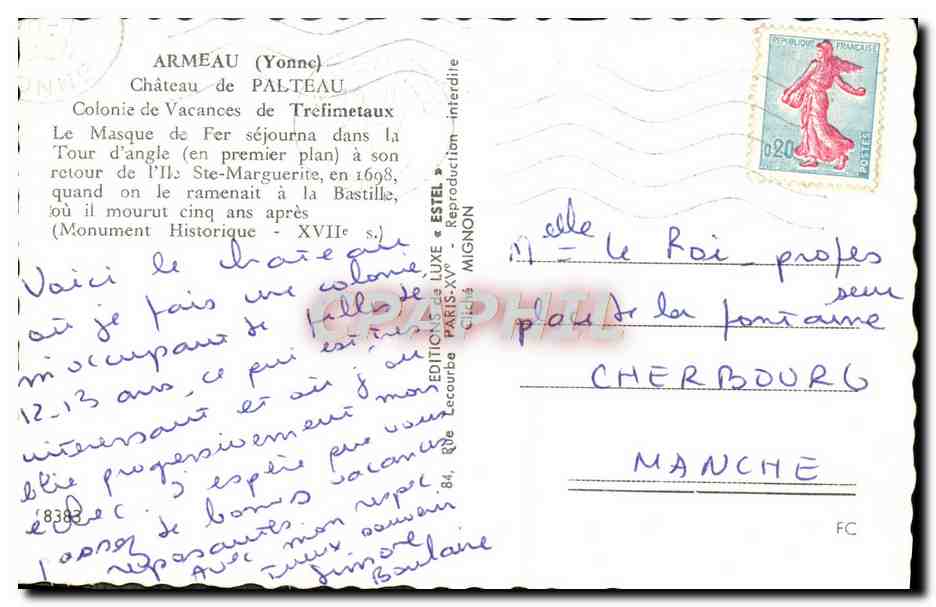 ARMEAU (Yonne)
Château de PALTEAU
Colonie de Vacances de Tréfimetaux
Le Masque de Fer séjourna dans la
Tour d'angle (en premier plan) à son
retour de l'Ile Ste-Marguerite, en 1698,
quand on le ramenait à la Bastille,
où il mourut cinq ans après
(Monument Historique - XVIIe s.)
Voici le château
où je fais une colonie,
m'occupant de filles de
12-13 ans, ce qui est très
intéressant et où j'ou
blie progressivement mon
échec ; j'espère que vous
passez de bonnes vacances
reposantes.
Avec mon respec
tueux souvenir
Simone
Boulaire
8383
EDITIONS de LUXE « ESTEL »
84, Rue Lecourbe PARIS-XVe - Reproduction interdite
Cliché MIGNON
CPAPHIL
REPUBLIQUE FRANÇAISE
0,20
POSTES
Melle le Roi - profes
seur
place de la fontaine
CHERBOURG
MANCHE
FC